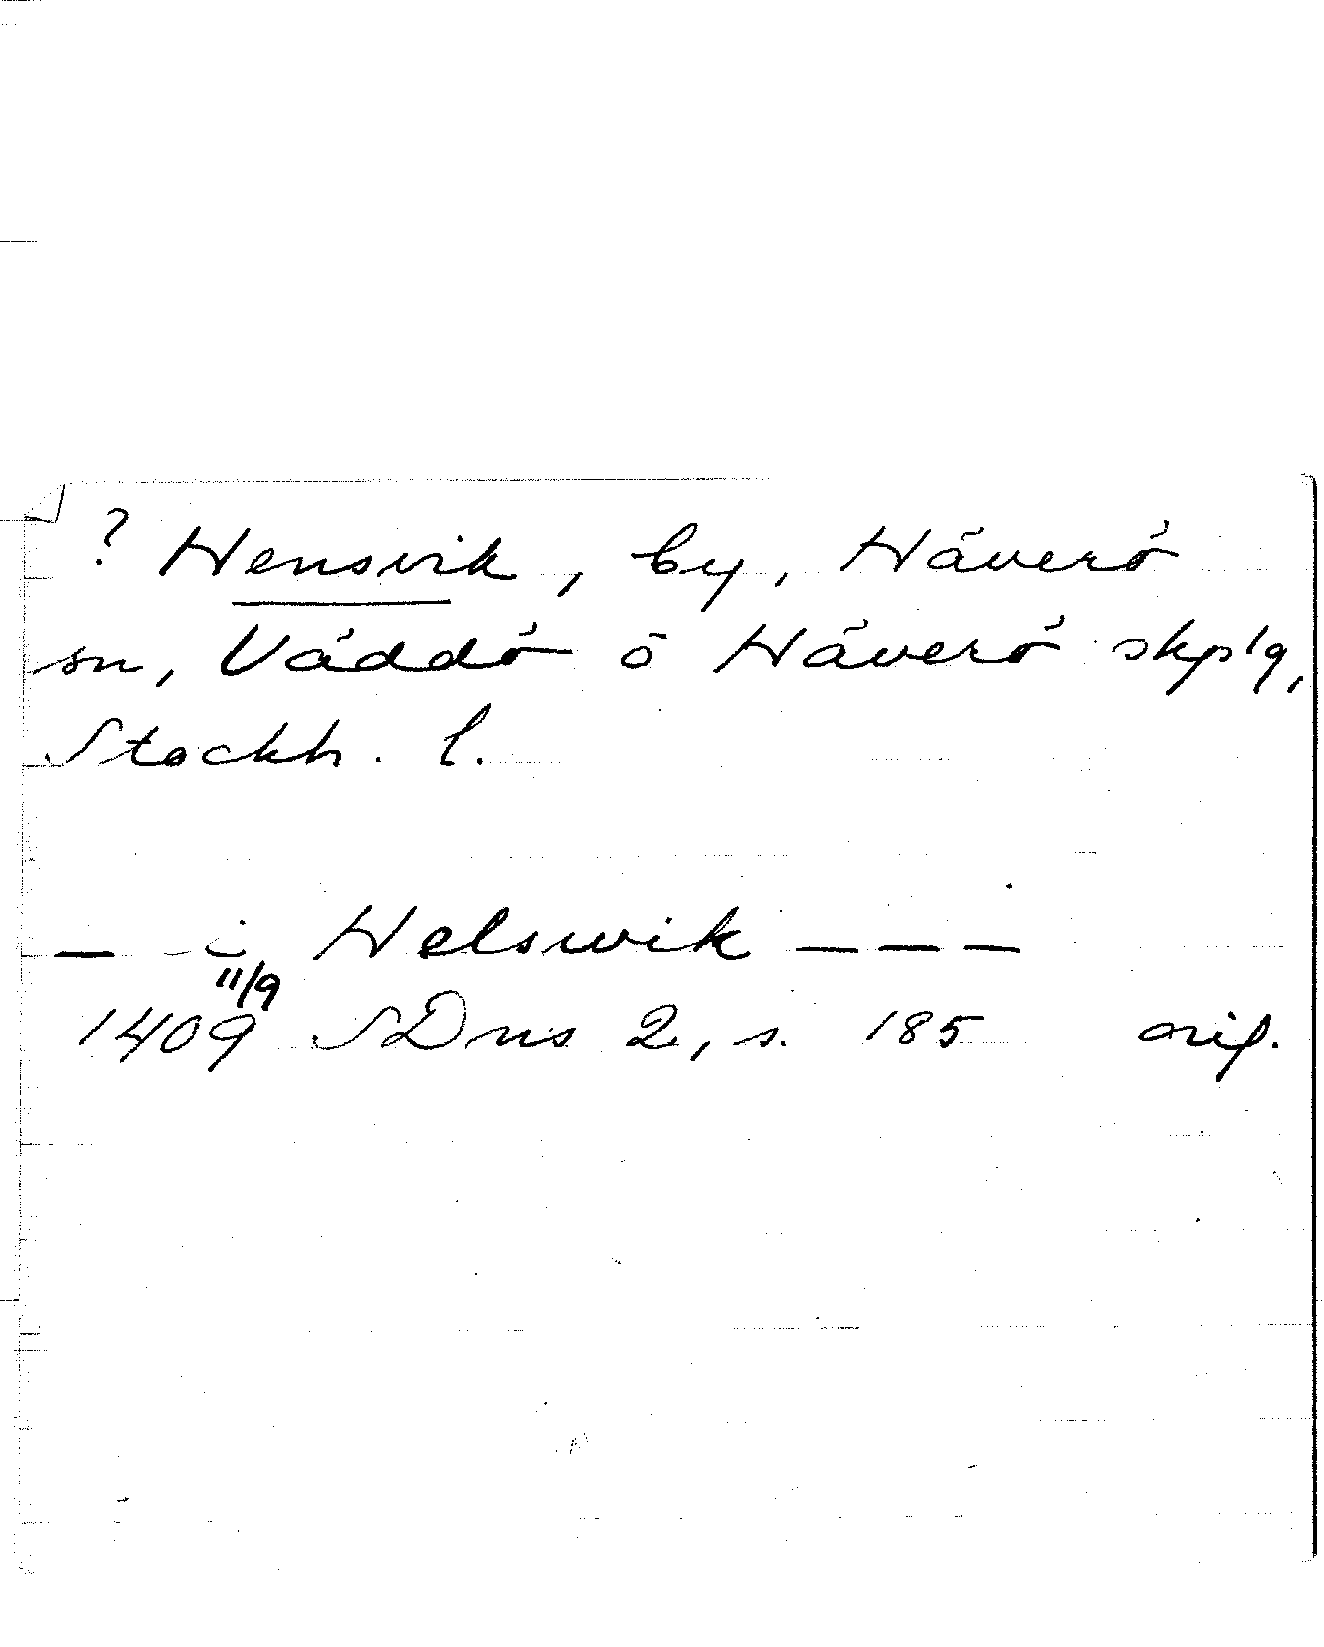 ? Hensvik, by, Häverö
sn, Väddö o Häverö skplg,
Stockh. l.
— – i Helswik — — —
11/9
1409 SDns 2, s. 185 orig.